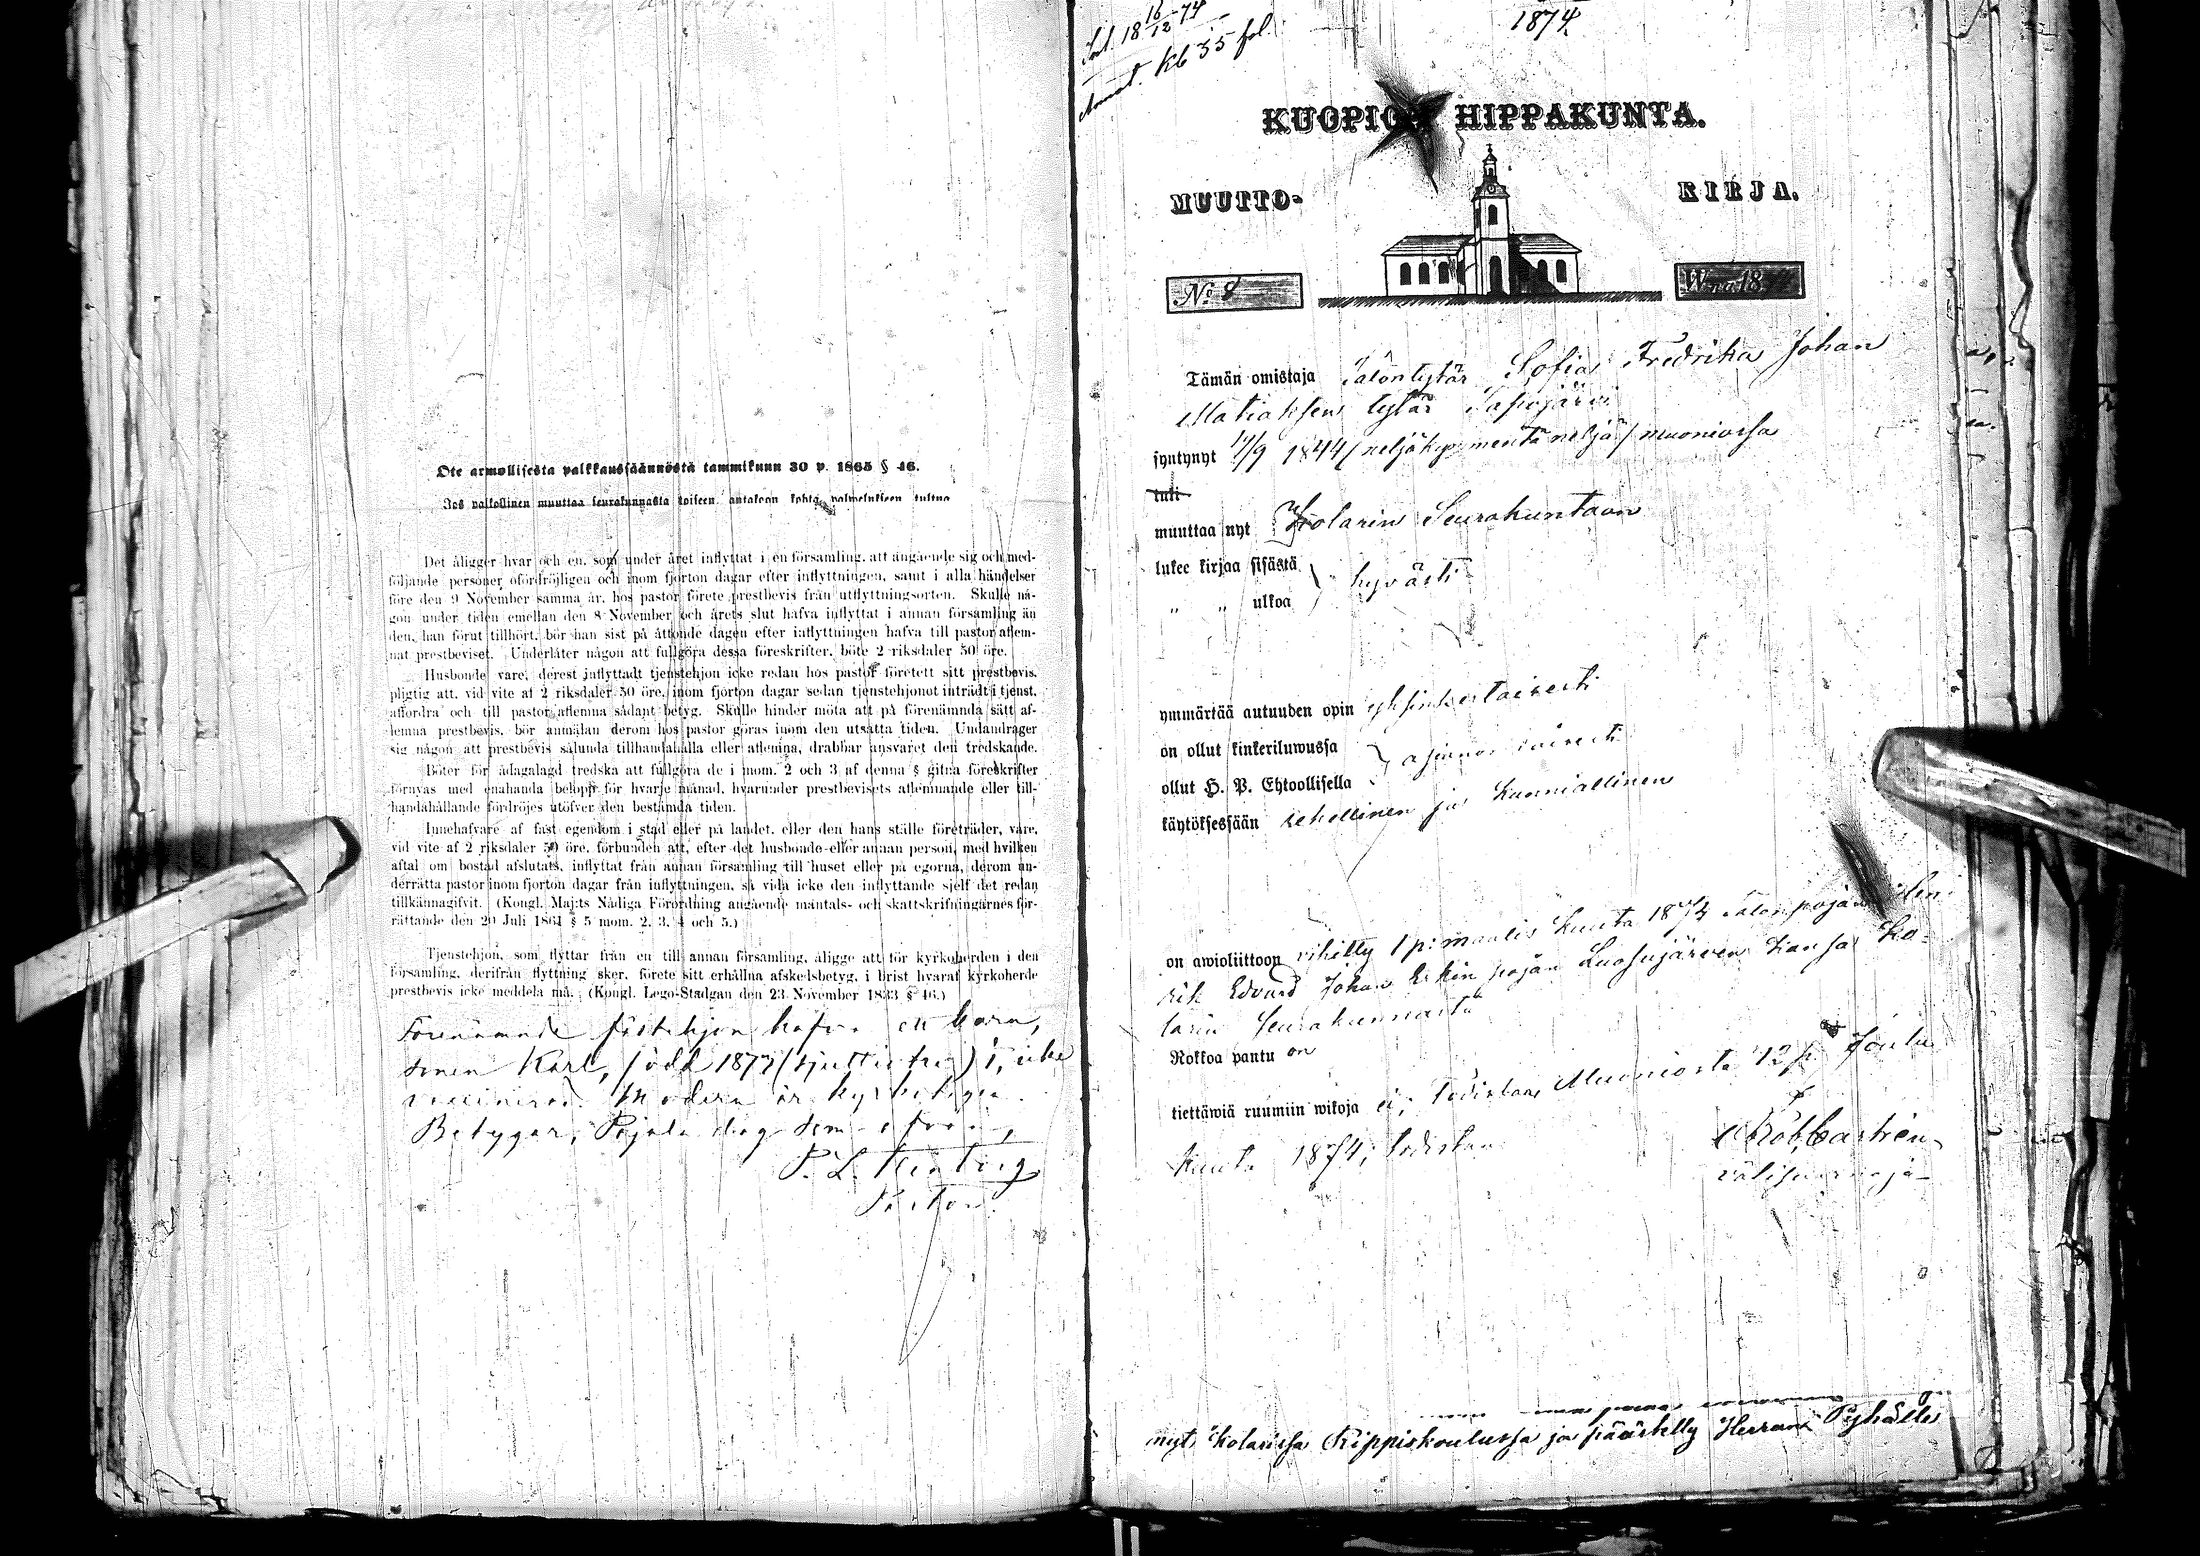 Ote armollisesta palkkaussäännöstä tammikuun 30 p. 1865 § 46.
Jos palkollinen muuttaa seurakunnasta toiseen, antakoon kohta palvelukseen tultua
Det åligger hvar och en, som under året inflyttat i en församling, att angående sig och med-
följande personer ofördröjligen och inom fjorton dagar efter inflyttningen, samt i alla händelser
före den 9 November samma år, hos pastor förete prestbevis från utflyttningsorten. Skulle nå-
gon under tiden emellan den 8 November och årets slut hafva inflyttat i annan församling än
den, han förut tillhört, bör han sist på åttonde dagen efter inflyttningen hafva till pastor aflem-
nat prestbeviset. Underlåter någon att fullgöra dessa föreskrifter, böte 2 riksdaler 50 öre.
Husbonde vare, derest inflyttadt tjenstehjon icke redan hos pastor företett sitt prestbevis,
pligtig att, vid vite af 2 riksdaler 50 öre, inom fjorton dagar sedan tjenstehjonet inträdt i tjenst,
affordra och till pastor aflemna sådant betyg. Skulle hinder möta att på förenämnda sätt af-
lemna prestbevis, bör anmälan derom hos pastor göras inom den utsatta tiden. Undandrager
sig någon att prestbevis sålunda tillhandahålla eller aflemna, drabbar ansvaret den tredskande.
Böter för ådagalagd tredska att fullgöra de i mom. 2 och 3 af denna § gifna föreskrifter
förnyas med enahanda belopp för hvarje månad, hvarunder prestbevisets aflemnande eller till-
handahållande fördröjes utöfver den bestämda tiden.
Innehafvare af fast egendom i stad eller på landet, eller den hans ställe företräder, vare,
vid vite af 2 riksdaler 50 öre, förbunden att, efter det husbonde eller annan person, med hvilken
aftal om bostad afslutats, inflyttat från annan församling till huset eller på egorna, derom un-
derrätta pastor inom fjorton dagar från inflyttningen, så vida icke den inflyttande sjelf det redan
tillkännagifvit. (Kongl. Maj:ts Nådiga Förordning angående mantals- och skattskrifningarnes för-
rättande den 20 Juli 1861 § 5 mom. 2, 3, 4 och 5.)
Tjenstehjon, som flyttar från en till annan församling, åligge att för kyrkoherden i den
församling, derifrån flyttning sker, förete sitt erhållna afskedsbetyg, i brist hvaraf kyrkoherde
prestbevis icke meddela må. (Kongl. Lego-Stadgan den 23 November 1833 § 46.)
Förenämnde hafva ett barn,
sonen Karl, född 1873 (sjuttiotre) icke
vaccinerad. Modern är kyrkotagen.
Betygar, Pajala dag som ofvan,
P. L.
Pastor.
1874
kb 35 fol.
KUOPION HIPPAKUNTA.
MUUTTO- KIRJA.
No 8 W:na 18
Tämän omistaja Talontytär Sofia Fredrika Johan
Matiaksen tytär Sapojärvi
syntynyt 17/9 1844 (neljäkymmentä neljä) muoniossa
tuli
muuttaa nyt Kolarin Seurakuntaan
lukee kirjaa sisästä
" " ulkoa hyvästi
ymmärtää autuuden opin yksinkertaisesti
on ollut kinkeriluwussa
ollut H. P. Ehtoollisella
käytöksessään rehellinen ja kunniallinen
on awioliittoon vihitty 1 p: maalis kuuta 1874 Talonpojan Hen
rik Edvard Johan Erkin pojan Luosujärven kansa Ko-
larin Seurakunnasta
Rokkoa pantu on
tiettäwiä ruumiin wikoja ei; todistaa, Muoniosta 12 p. Joulu
kuuta 1874, todistaa
Rob Castrén
välisaarnaja
nyt Kolarissa Rippikoulussa ja päästetty Herran Pyhälle